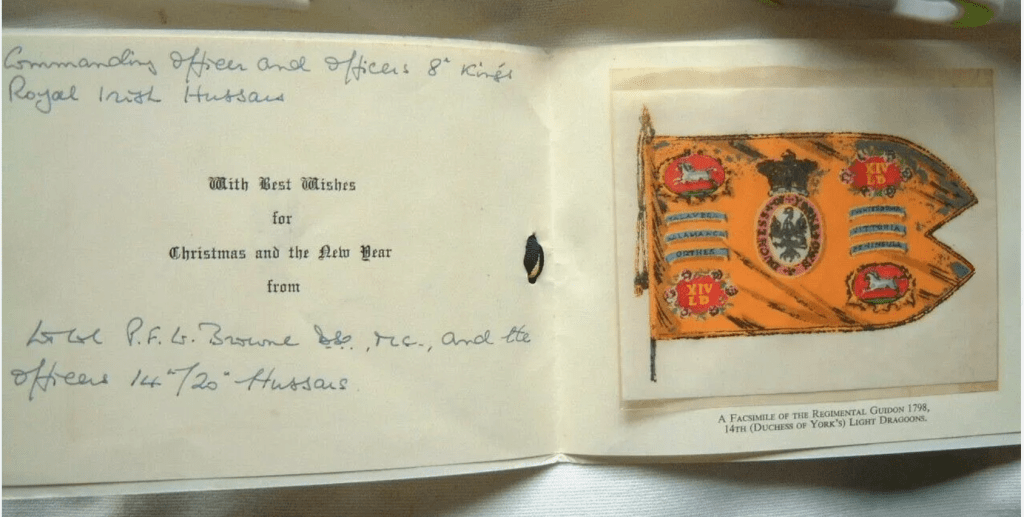 Commanding Officer and Officers 8th King's
Royal Irish Hussars
With Best Wishes
for
Christmas and the New Year
from
Lt Col P.F.W. Browne DSO., MC., and the
Officers 14th/20th Hussars.
DUCHESS OF YORK'S OWN
XIV
LD
TALAVERA
SALAMANCA
ORTHES
VITTORIA
PENINSULA
XIV
LD
A FACSIMILE OF THE REGIMENTAL GUIDON 1798,
14TH (DUCHESS OF YORK'S) LIGHT DRAGOONS.